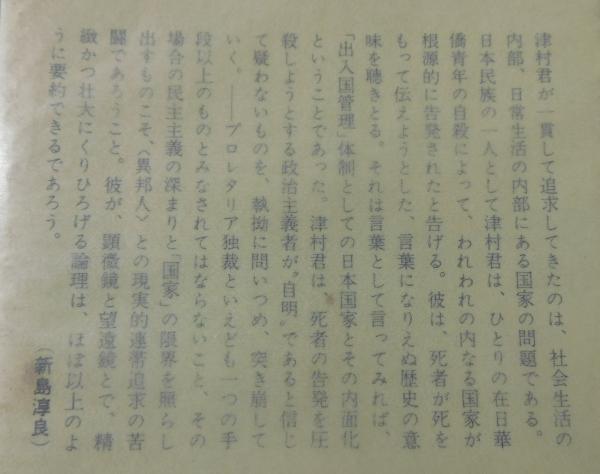 津村君が一貫して追求してきたのは、社会生活の
内部、日常生活の内部にある国家の問題である。
日本民族の一人として津村君は、ひとりの在日華
僑青年の自殺によって、われわれの内なる国家が
根源的に告発されたと告げる。彼は、死者が死を
もって伝えようとした、言葉になりえぬ歴史の意
味を聴きとる。それは言葉として言ってみれば、
「出入国管理」体制としての日本国家とその内面化
ということであった。津村君は、死者の告発を圧
殺しようとする政治主義者が〝自明〟であると信じ
て疑わないものを、執拗に問いつめ、突き崩して
いく。――プロレタリア独裁といえども一つの手
段以上のものとみなされてはならないこと、その
場合の民主主義の深まりと「国家」の限界を照らし
出すものこそ、〈異邦人〉との現実的連帯追求の苦
闘であろうこと。彼が、顕微鏡と望遠鏡とで、精
緻かつ壮大にくりひろげる論理は、ほぼ以上のよ
うに要約できるであろう。
（新島淳良）